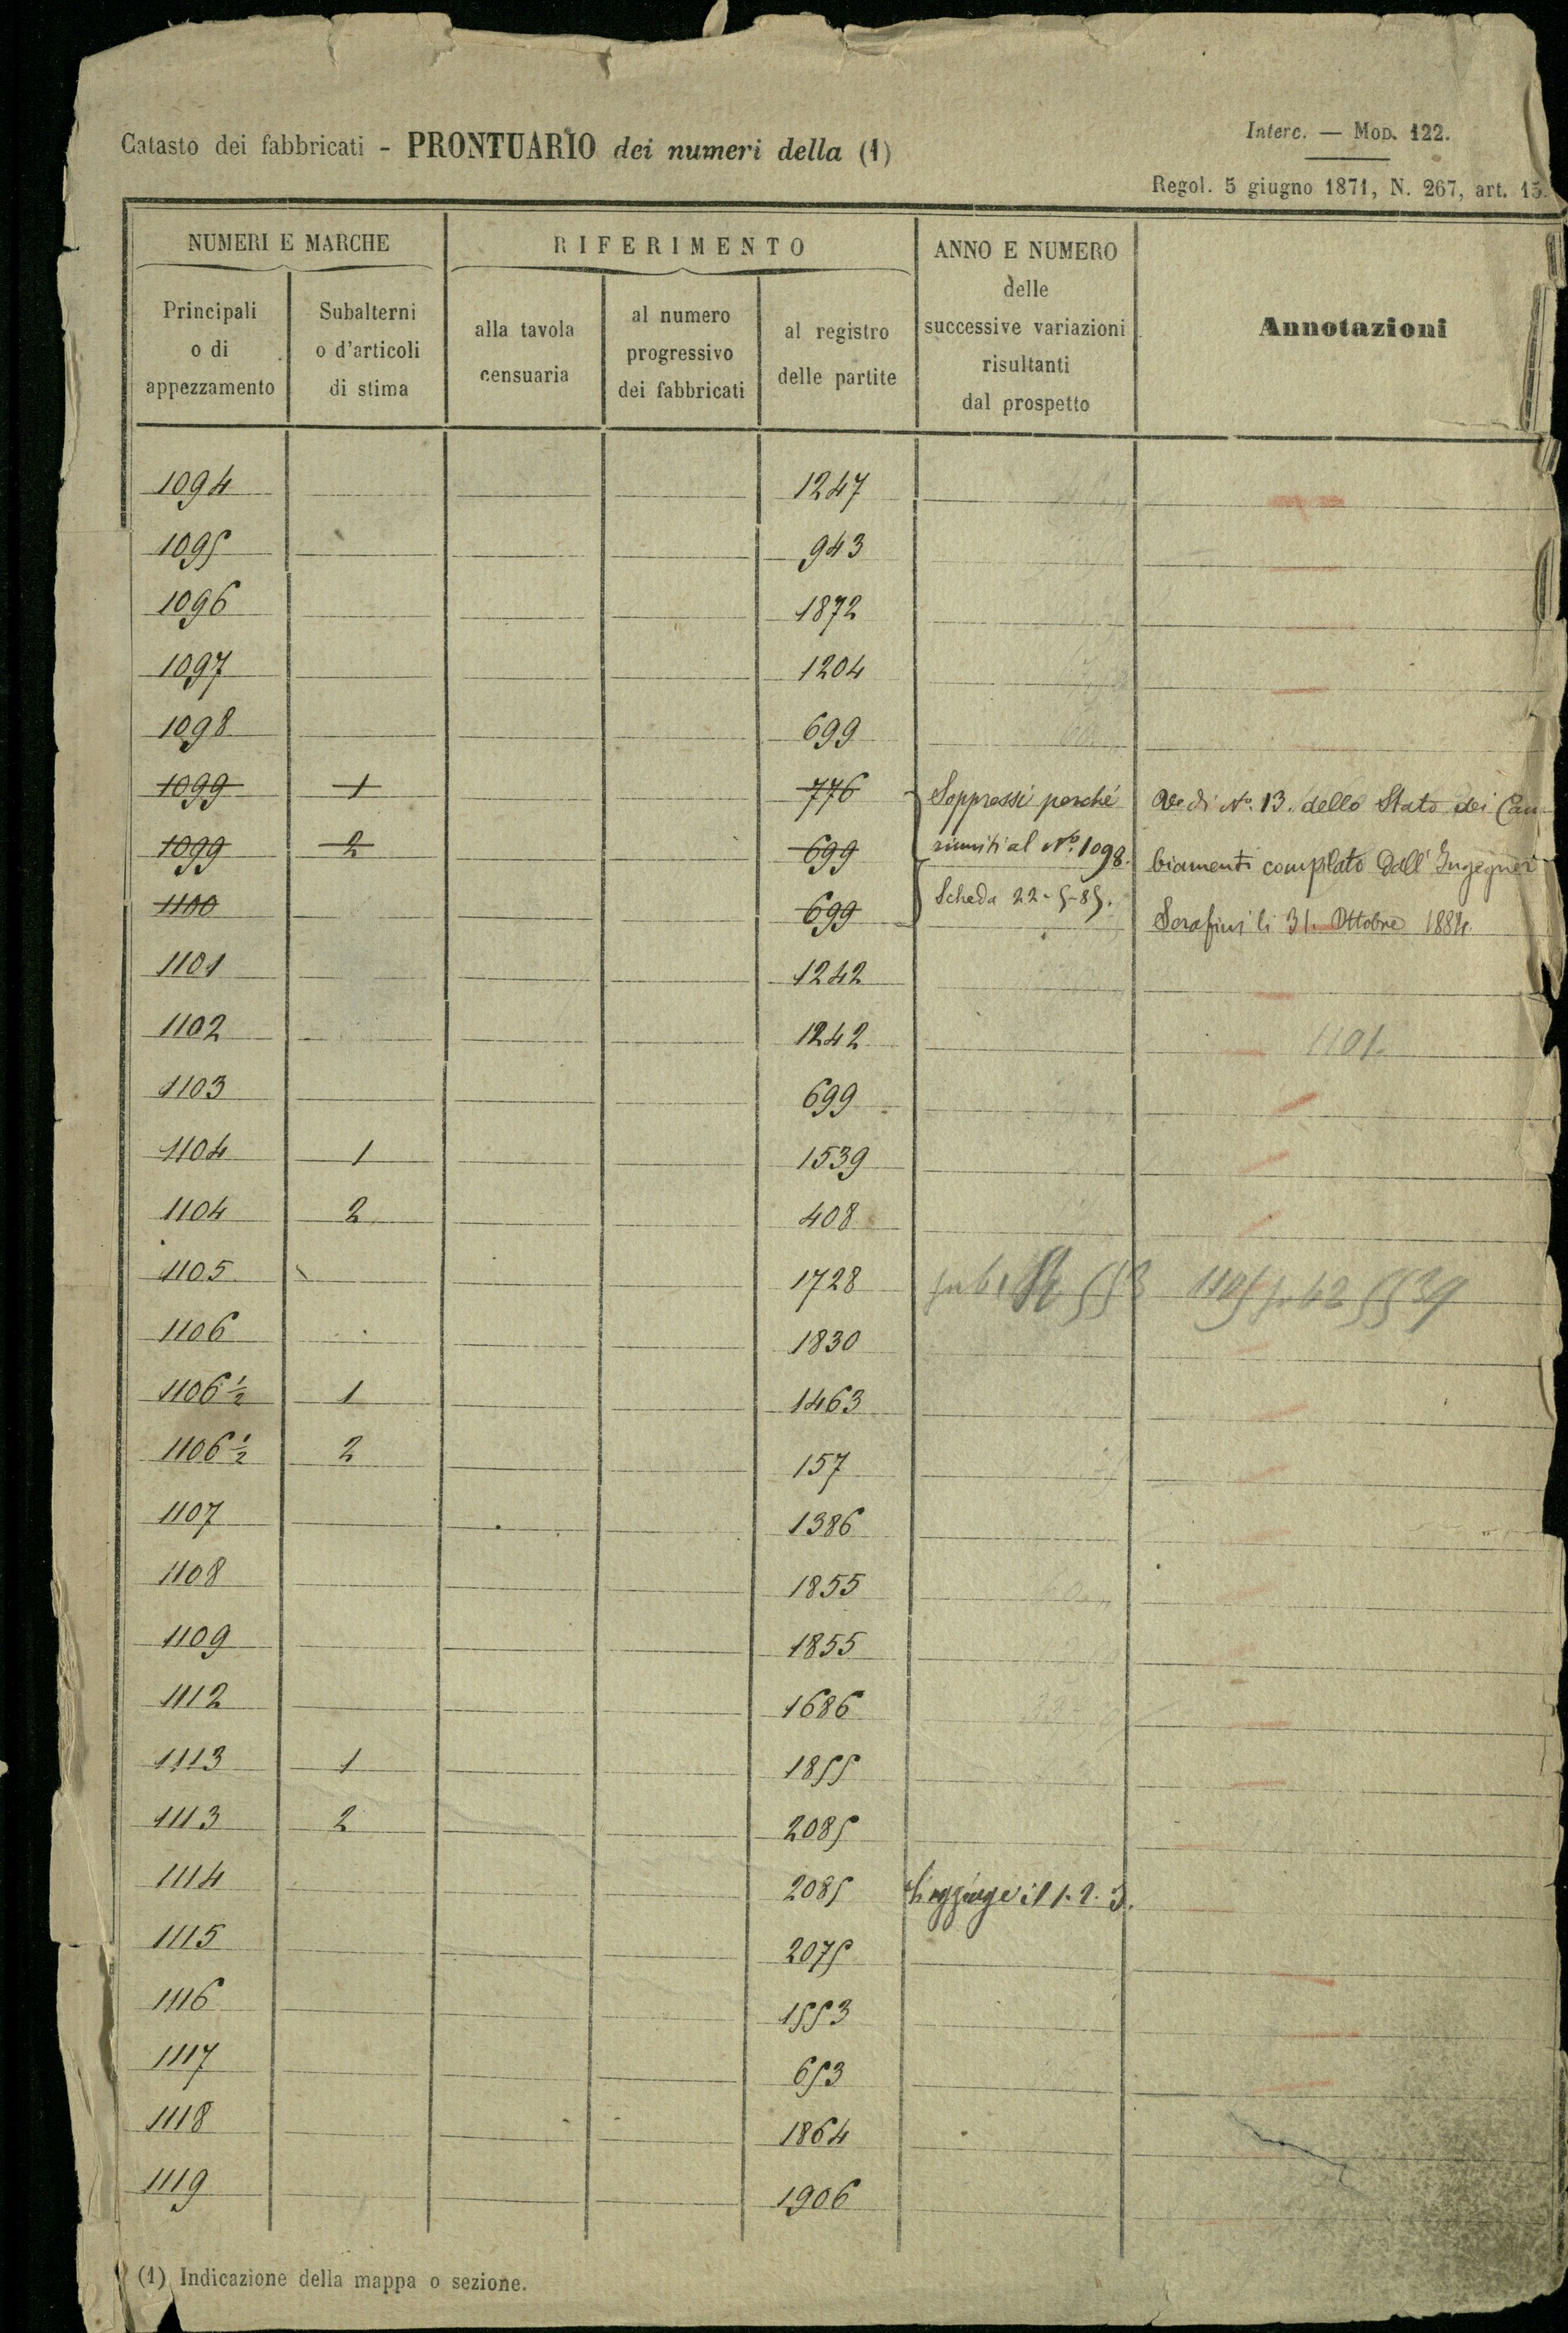 Catasto dei fabbricati - PRONTUARIO dei numeri della (1)
Interc. — Mod. 122.
Regol. 5 giugno 1871, N. 267, art. 15.
NUMERI E MARCHE
RIFERIMENTO
ANNO E NUMERO
delle
successive variazioni
risultanti
dal prospetto
Annotazioni
Principali
o di
appezzamento
Subalterni
o d'articoli
di stima
alla tavola
censuaria
al numero
progressivo
dei fabbricati
al registro
delle partite
1094 1247
1095 943
1096 1872
1097 1204
1098 699
1099 1 776 Soppressi perché Vedi N.º 13. dello Stato dei Cam
1099 2 699 riuniti al Nº. 1098. biamenti compilato dall'Ingegner
1100 699 Scheda 22-5-85. Serafini li 31. Ottobre 1884.
1101 1242
1102 1242 1101.
1103 699
1104 1 1539
1104 2 408
1105 1728 sub 1 553 1105 5539
1106 1830
1106 ½ 1 1463
1106 ½ 2 157
1107 1386
1108 1855
1109 1855
1112 1686
1113 1 1855
1113 2 2085
1114 2085 il 1. 2. 3.
1115 2075
1116 1553
1117 653
1118 1864
1119 1906
(1) Indicazione della mappa o sezione.